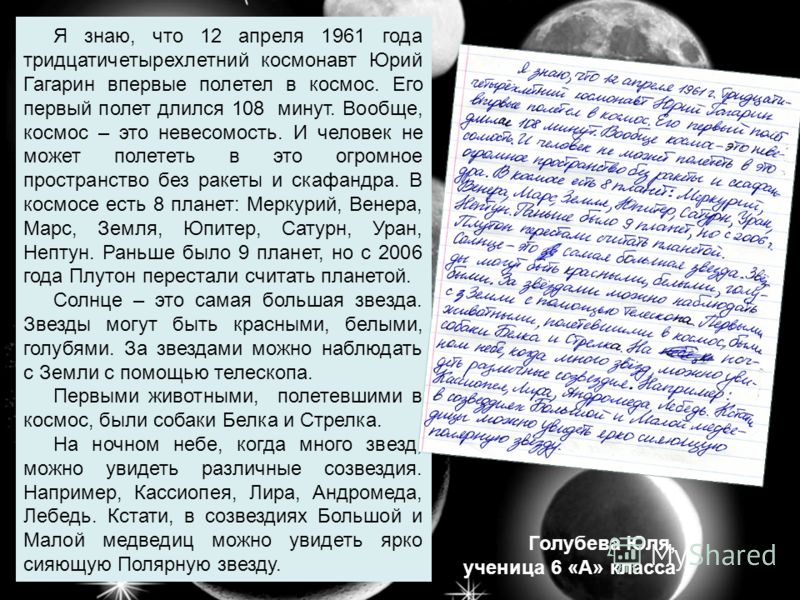 Я знаю, что 12 апреля 1961 года
тридцатичетырехлетний космонавт Юрий
Гагарин впервые полетел в космос. Его
первый полет длился 108 минут. Вообще,
космос – это невесомость. И человек не
может полететь в это огромное
пространство без ракеты и скафандра. В
космосе есть 8 планет: Меркурий, Венера,
Марс, Земля, Юпитер, Сатурн, Уран,
Нептун. Раньше было 9 планет, но с 2006
года Плутон перестали считать планетой.
Солнце – это самая большая звезда.
Звезды могут быть красными, белыми,
голубями. За звездами можно наблюдать
с Земли с помощью телескопа.
Первыми животными, полетевшими в
космос, были собаки Белка и Стрелка.
На ночном небе, когда много звезд,
можно увидеть различные созвездия.
Например, Кассиопея, Лира, Андромеда,
Лебедь. Кстати, в созвездиях Большой и
Малой медведиц можно увидеть ярко
сияющую Полярную звезду.
Я знаю, что 12 апреля 1961 г. тридцати-
четырёхлетний космонавт Юрий Гагарин
впервые полетел в космос. Его первый полёт
длился 108 минут. Вообще космос – это неве-
сомость. И человек не может полететь в это
огромное пространство без ракеты и скафан-
дра. В космосе есть 8 планет: Меркурий,
Венера, Марс, Земля, Юпитер, Сатурн, Уран,
Нептун. Раньше было 9 планет, но с 2006 г.
Плутон перестали считать планетой.
Солнце – это самая большая звезда. Звёз-
ды могут быть красными, белыми, голу-
быми. За звёздами можно наблюдать
с Земли с помощью телескопа. Первыми
животными, полетевшими в космос, были
собаки Белка и Стрелка. На ноч-
ном небе, когда много звёзд, можно уви-
деть различные созвездия. Например:
Кассиопея, Лира, Андромеда, Лебедь. Кстати,
в созвездиях Большой и Малой медве-
дицы можно увидеть ярко сияющую
полярную звезду.
Голубева Юля,
ученица 6 «А» класса
MyShared